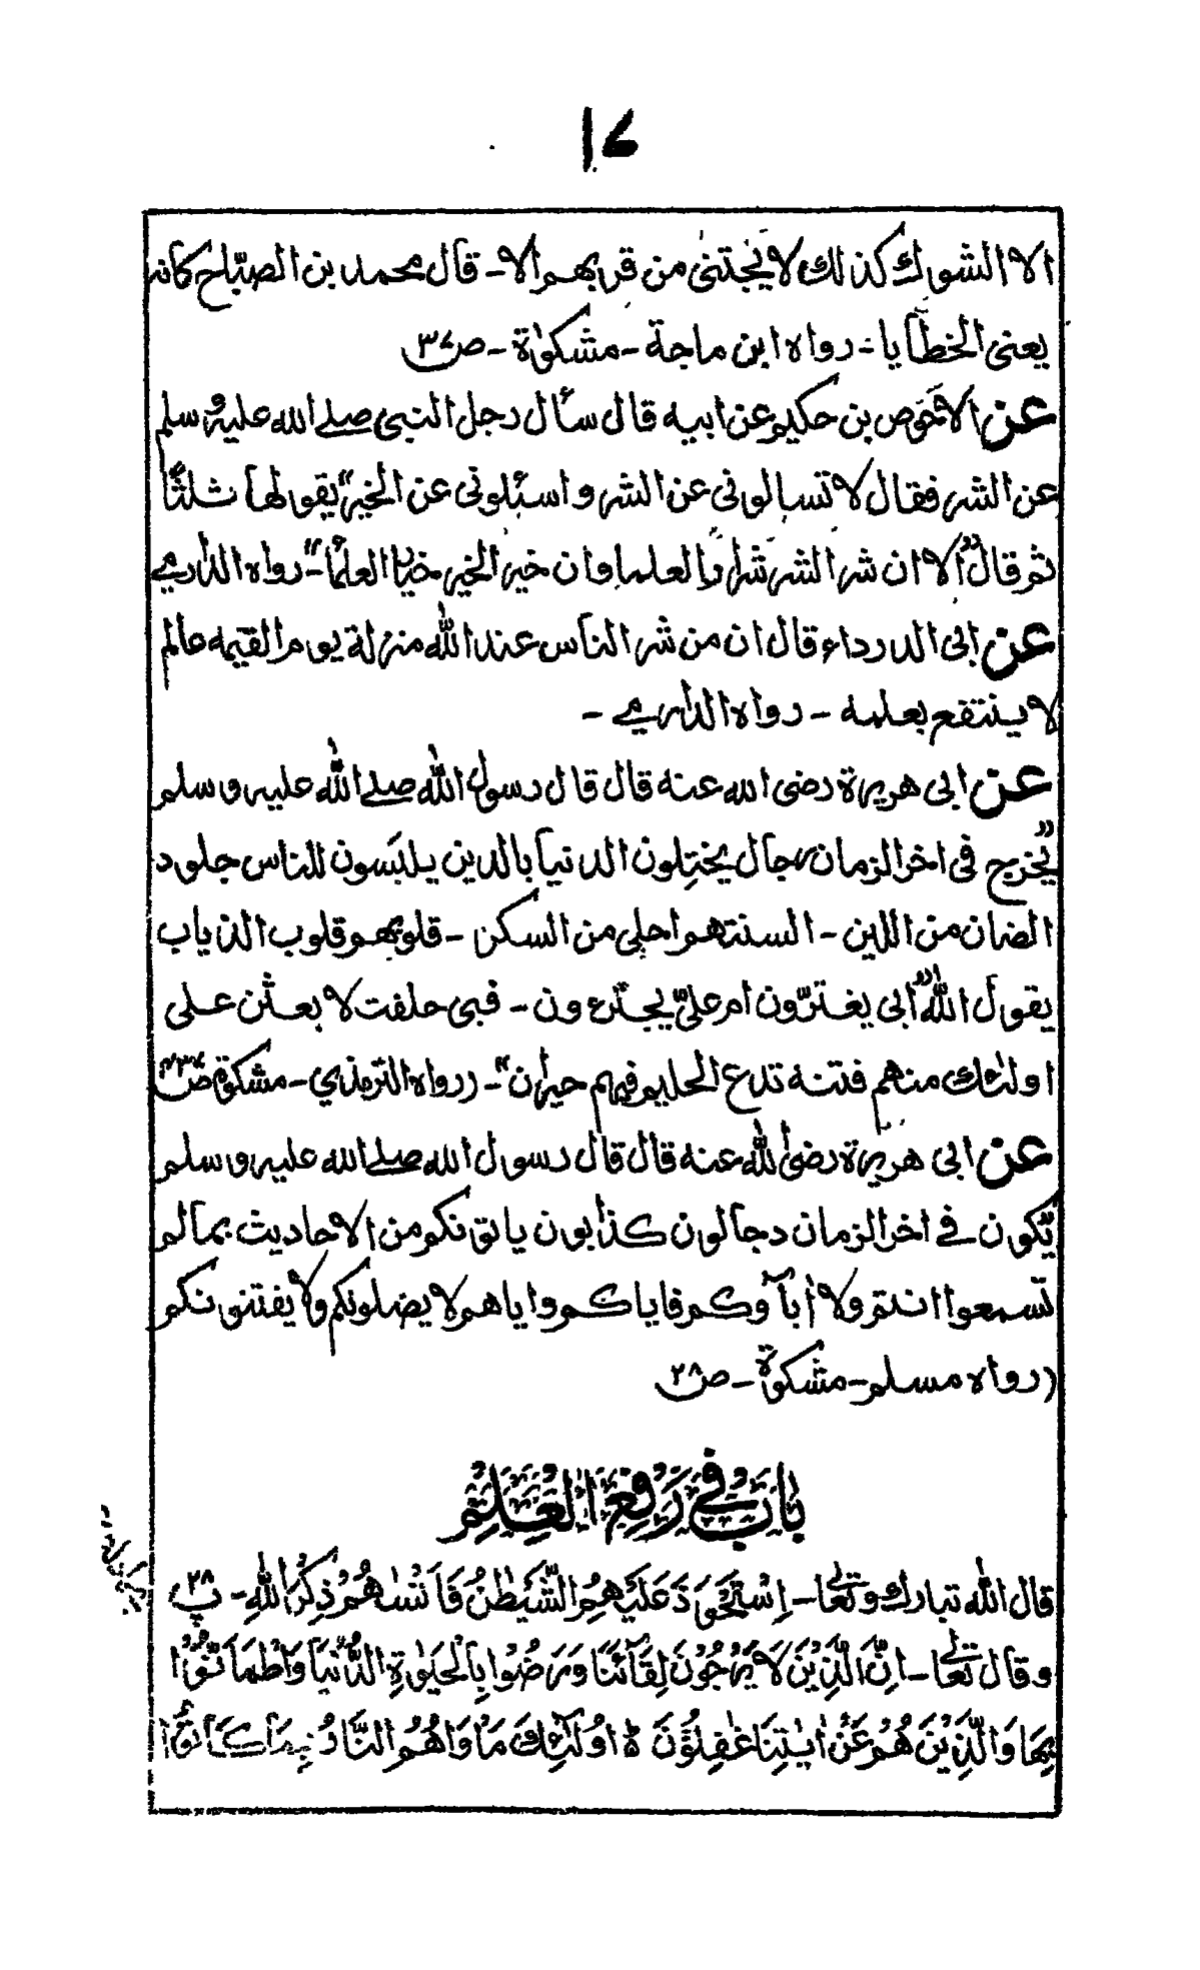 ۱۷
الا الشوك كذلك لا يُجتنٰى من قربهم الا۔ قال محمد بن الصبّاح كانه
يعنى الخطايا۔ رواه ابن ماجة۔ مشكوٰة۔ ص ۳۷
عن الاحوص بن حكيم عن ابيه قال سأل رجل النبى صلے الله عليه وسلم
عن الشر فقال لا تسالونى عن الشر و اسئلونى عن الخير" يقولها ثلثًا
ثم قال "الا ان شر الشر شرار العلما وان خير الخير خيار العلمآ"۔ رواه الدارمے
عن ابى الدرداء قال ان من شر الناس عند الله منزلة يوم القيٰمه عالم
لا ينتفع بعلمه ۔ رواه الدارمے ۔
عن ابى هريرة رضى الله عنه قال قال رسول الله صلے الله عليه وسلم
"يخرج فى اخر الزمان رجال يختِلون الدنيا بالدين يلبَسون للناس جلود
الضان من اللين ۔ السنتهم احلى من السكر ۔ قلوبهم قلوب الذياب
يقول الله "ابى يغترّون ام علىّ يجترءون ۔ فبى حلفت لا بعثن على
اولئك منهم فتنة تدع الحليم فيهم حيران"۔ (رواه الترمذي ۔ مشكوٰة ص
عن ابى هريرة رضى الله عنه قال قال رسول الله صلے الله عليه وسلم
يّكون فے اخر الزمان دجالون كذابون ياتونكم من الاحاديث بما لم
تسمعوا انتم ولا اٰبآؤكم فاياكم واياهم لا يضلونكم ولا يفتنونكم
(رواه مسلم ۔ مشكوٰة ۔ ص ۲۸
بَابٌ فِي رَفْعِ الْعِلْمِ
قال الله تبارك وتعٰا۔ اِسْتَحْوَذَ عَلَيْهِمُ الشَّيْطٰنُ فَاَنْسٰهُمْ ذِكْرَ اللهِ ۔ پ ۲۸
وقال تعٰا۔ اِنَّ الَّذِيْنَ لَا يَرْجُوْنَ لِقَآئَنَا وَرَضُوْا بِالْحَيٰوةِ الدُّنْيَا وَاطْمَاَنُّوْا
بِهَا وَالَّذِيْنَ هُمْ عَنْ اٰيٰتِنَا غٰفِلُوْنَ ۝ اُولٰئِكَ مَاْوَاهُمُ النَّارُ بِمَا كَانُوْا